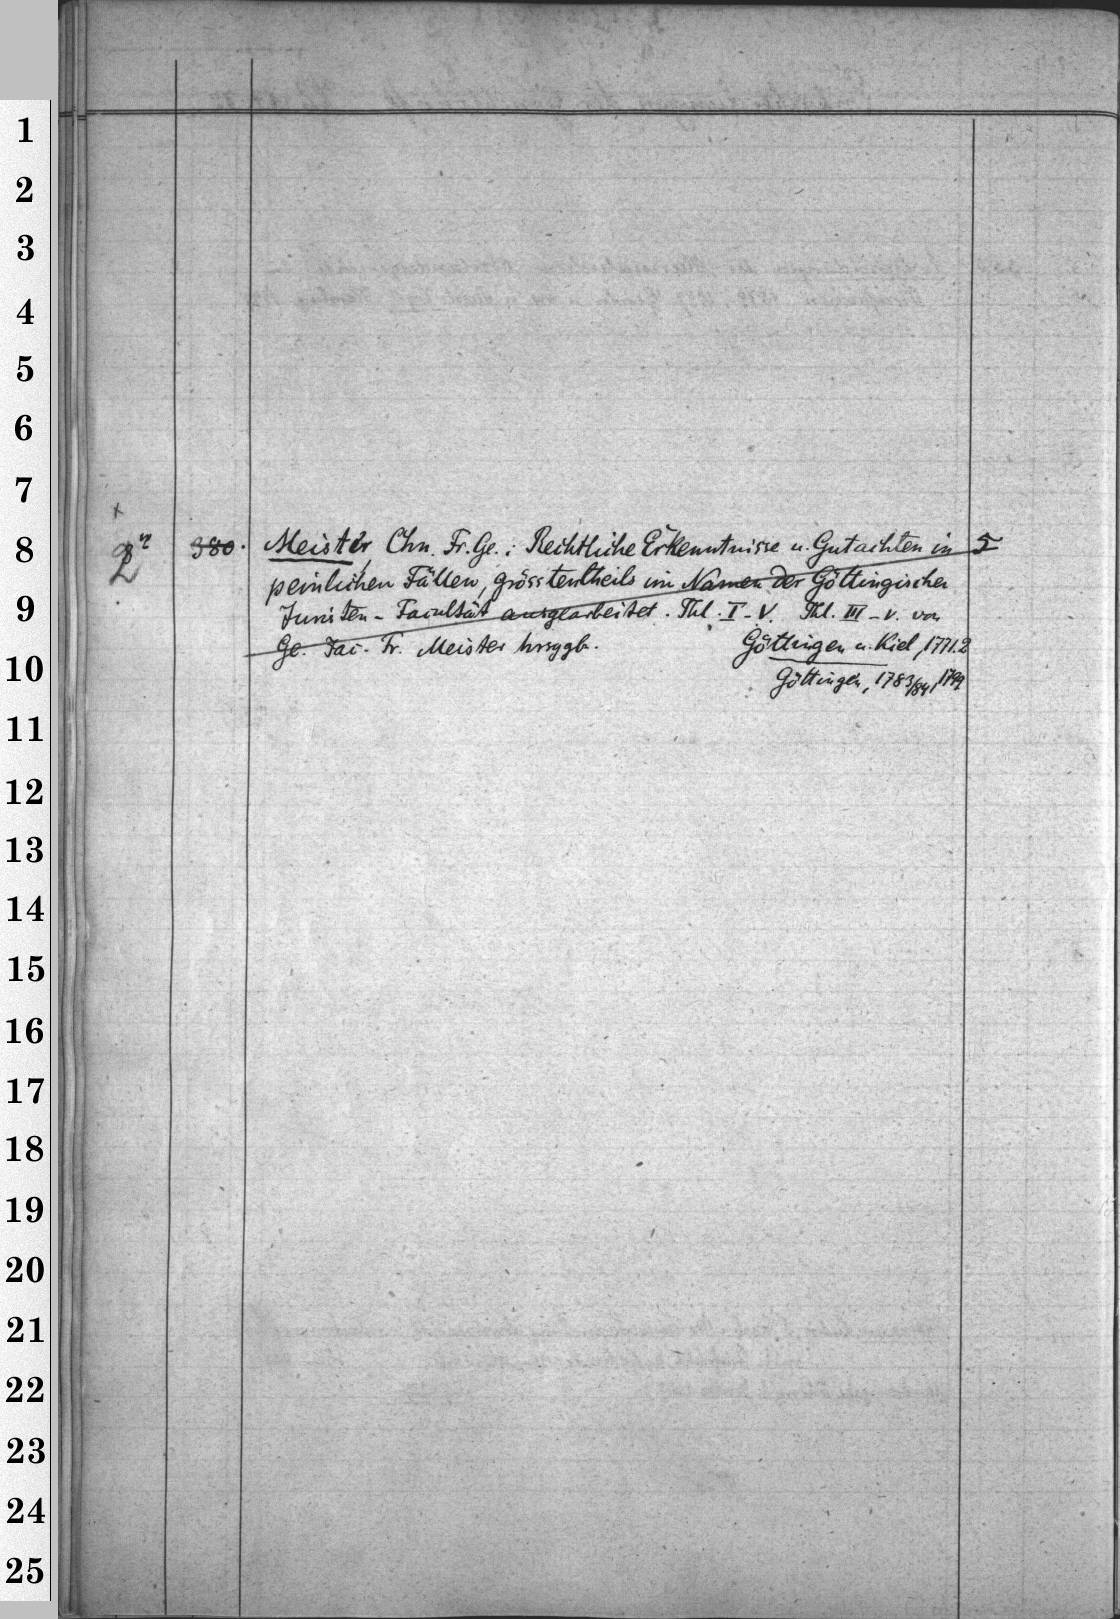 1
2
3
4
5
6
7
x
8 2 n 380. Meister, Chn. Fr. Ge.: Rechtliche Erkenntnisse u. Gutachten in 5
peinlichen Fällen, grösstentheils im Namen der Göttingischen
9 Juristen-Facultät ausgearbeitet. Thl. I-V. Thl. III-V. von
Ge. Jac. Fr. Meister hrsggb. Göttingen u. Kiel, 1771.2
10 Göttingen, 1783/84, 1799
11
12
13
14
15
16
17
18
19
20
21
22
23
24
25